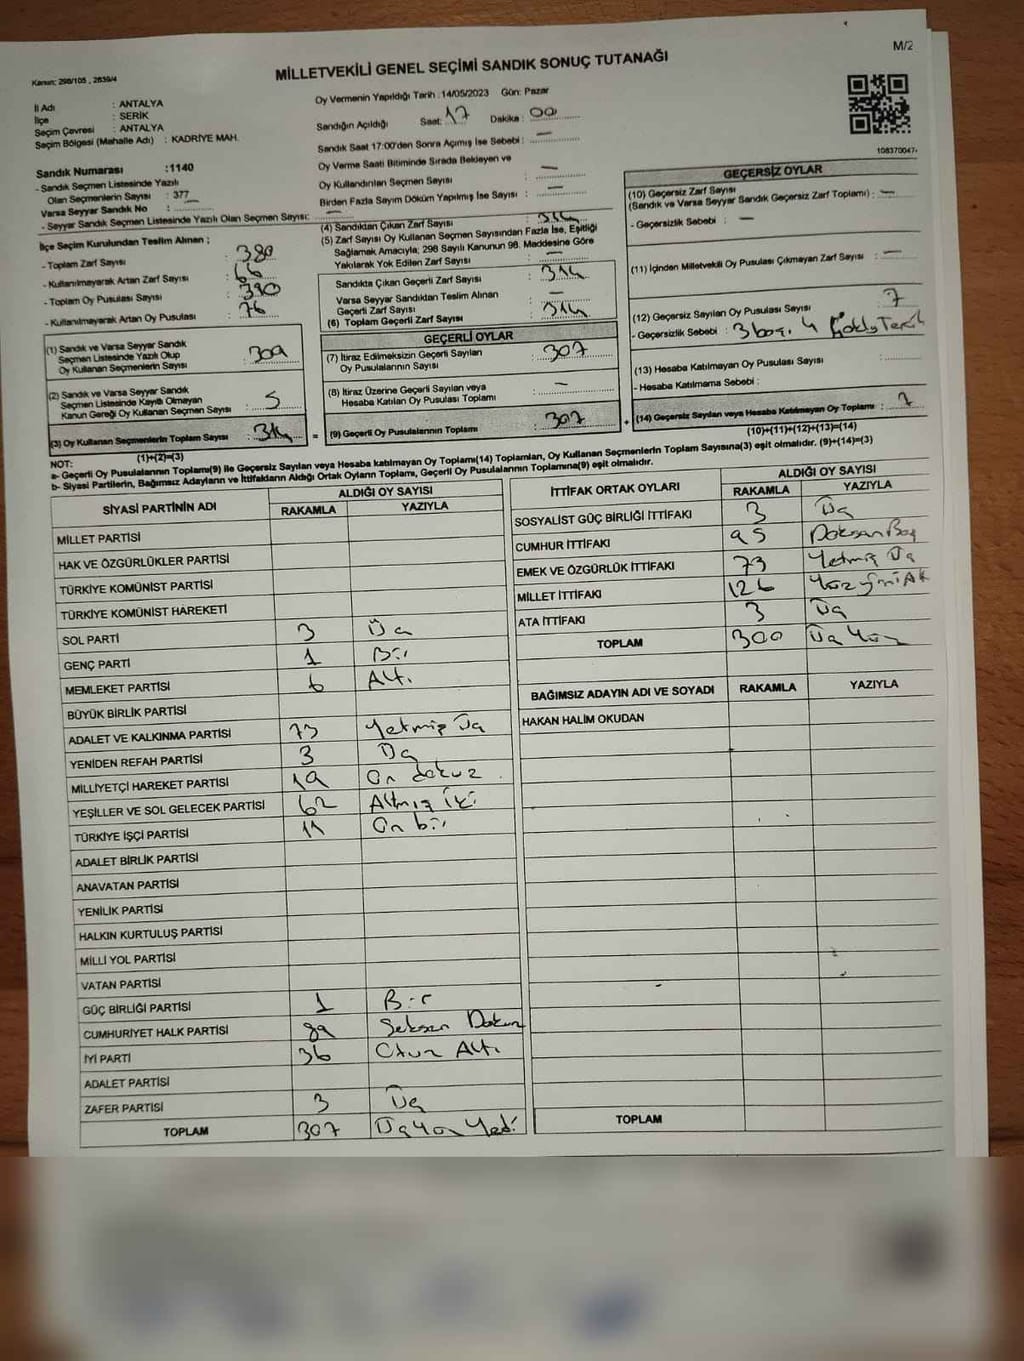 M/2
Kanun: 298/105 , 2839/4
MİLLETVEKİLİ GENEL SEÇİMİ SANDIK SONUÇ TUTANAĞI
İl Adı : ANTALYA
İlçe : SERİK
Seçim Çevresi : ANTALYA
Seçim Bölgesi (Mahalle Adı) : KADRİYE MAH.
Sandık Numarası :1140
- Sandık Seçmen Listesinde Yazılı
Olan Seçmenlerin Sayısı : 377
Varsa Seyyar Sandık No : —
- Seyyar Sandık Seçmen Listesinde Yazılı Olan Seçmen Sayısı: —
Oy Vermenin Yapıldığı Tarih :14/05/2023 Gün: Pazar
Sandığın Açıldığı Saat: 17 Dakika : 00
Sandık Saat 17:00'den Sonra Açımış İse Sebebi : —
Oy Verme Saati Bitiminde Sırada Bekleyen ve
Oy Kullandırılan Seçmen Sayısı : —
Birden Fazla Sayım Döküm Yapılmış İse Sayısı : —
108370047
İlçe Seçim Kurulundan Teslim Alınan ;
- Toplam Zarf Sayısı : 380
- Kullanılmayarak Artan Zarf Sayısı : 66
- Toplam Oy Pusulası Sayısı : 390
- Kullanılmayarak Artan Oy Pusulası : 76
(1) Sandık ve Varsa Seyyar Sandık
Seçmen Listesinde Yazılı Olup
Oy Kullanan Seçmenlerin Sayısı : 309
(2) Sandık ve Varsa Seyyar Sandık
Seçmen Listesinde Kayıtlı Olmayan
Kanun Gereği Oy Kullanan Seçmen Sayısı : 5
(3) Oy Kullanan Seçmenlerin Toplam Sayısı : 314
(1)+(2)=(3)
(4) Sandıktan Çıkan Zarf Sayısı : 314
(5) Zarf Sayısı Oy Kullanan Seçmen Sayısından Fazla İse, Eşitliği
Sağlamak Amacıyla; 298 Sayılı Kanunun 98. Maddesine Göre
Yakılarak Yok Edilen Zarf Sayısı : —
Sandıkta Çıkan Geçerli Zarf Sayısı : 314
Varsa Seyyar Sandıktan Teslim Alınan
Geçerli Zarf Sayısı : —
(6) Toplam Geçerli Zarf Sayısı : 314
GEÇERLİ OYLAR
(7) İtiraz Edilmeksizin Geçerli Sayılan
Oy Pusulalarının Sayısı : 307
(8) İtiraz Üzerine Geçerli Sayılan veya
Hesaba Katılan Oy Pusulası Toplamı : —
= (9) Geçerli Oy Pusulalarının Toplamı : 307 +
GEÇERSİZ OYLAR
(10) Geçersiz Zarf Sayısı
(Sandık ve Varsa Seyyar Sandık Geçersiz Zarf Toplamı) : —
- Geçersizlik Sebebi : —
(11) İçinden Milletvekili Oy Pusulası Çıkmayan Zarf Sayısı : —
(12) Geçersiz Sayılan Oy Pusulası Sayısı : 7
- Geçersizlik Sebebi : 3 boş, 4
(13) Hesaba Katılmayan Oy Pusulası Sayısı :
- Hesaba Katılmama Sebebi :
(14) Geçersiz Sayılan veya Hesaba Katılmayan Oy Toplamı : 7
(10)+(11)+(12)+(13)=(14)
NOT:
a- Geçerli Oy Pusulalarının Toplamı(9) ile Geçersiz Sayılan veya Hesaba katılmayan Oy Toplamı(14) Toplamları, Oy Kullanan Seçmenlerin Toplam Sayısına(3) eşit olmalıdır. (9)+(14)=(3)
b- Siyasi Partilerin, Bağımsız Adayların ve İttifakların Aldığı Ortak Oyların Toplamı, Geçerli Oy Pusulalarının Toplamına(9) eşit olmalıdır.
SİYASİ PARTİNİN ADI ALDIĞI OY SAYISI
RAKAMLA YAZIYLA
MİLLET PARTİSİ
HAK VE ÖZGÜRLÜKLER PARTİSİ
TÜRKİYE KOMÜNİST PARTİSİ
TÜRKİYE KOMÜNİST HAREKETİ
SOL PARTİ 3 Üç
GENÇ PARTİ 1 Bir
MEMLEKET PARTİSİ 6 Altı
BÜYÜK BİRLİK PARTİSİ
ADALET VE KALKINMA PARTİSİ 73 Yetmiş Üç
YENİDEN REFAH PARTİSİ 3 Üç
MİLLİYETÇİ HAREKET PARTİSİ 19 On dokuz
YEŞİLLER VE SOL GELECEK PARTİSİ 62 Altmış İki
TÜRKİYE İŞÇİ PARTİSİ 11 On bir
ADALET BİRLİK PARTİSİ
ANAVATAN PARTİSİ
YENİLİK PARTİSİ
HALKIN KURTULUŞ PARTİSİ
MİLLİ YOL PARTİSİ
VATAN PARTİSİ
GÜÇ BİRLİĞİ PARTİSİ 1 Bir
CUMHURİYET HALK PARTİSİ 89 Seksen Dokuz
İYİ PARTİ 36 Otuz Altı
ADALET PARTİSİ
ZAFER PARTİSİ 3 Üç
TOPLAM 307 Üç Yüz Yedi
İTTİFAK ORTAK OYLARI ALDIĞI OY SAYISI
RAKAMLA YAZIYLA
SOSYALİST GÜÇ BİRLİĞİ İTTİFAKI 3 Üç
CUMHUR İTTİFAKI 95 Doksan Beş
EMEK VE ÖZGÜRLÜK İTTİFAKI 73 Yetmiş Üç
MİLLET İTTİFAKI 126 Yüz Yirmi Altı
ATA İTTİFAKI 3 Üç
TOPLAM 300 Üç Yüz
BAĞIMSIZ ADAYIN ADI VE SOYADI RAKAMLA YAZIYLA
HAKAN HALİM OKUDAN
TOPLAM